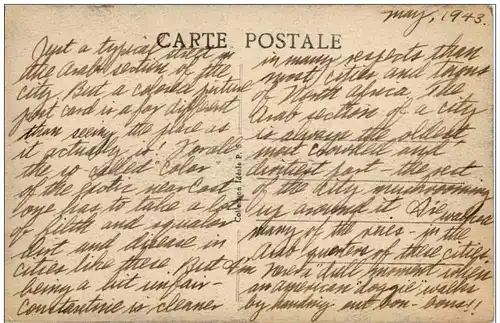 May, 1943.
CARTE POSTALE
Just a typical street in
the Arab section of the
city. But a colored picture
post card is a far different
than seeing the place as
it actually is! For all
the so called color
of the exotic near east
one has to take a lot
of filth and squalor
dirt and disease in
cities like these. But I'm
being a bit unfair -
Constantine is cleaner
Collection Idéale P. S.
in many respects than
most cities and towns
of North Africa. The
Arab section of a city
is always the oldest
most crowded and
dirtiest part - the rest
of the city mushrooming
up around it. I've walked
many of the rues - in the
Arab quarters of these cities.
Never a dull moment when
an American "doggie" walks
by handing out bon-bons!!